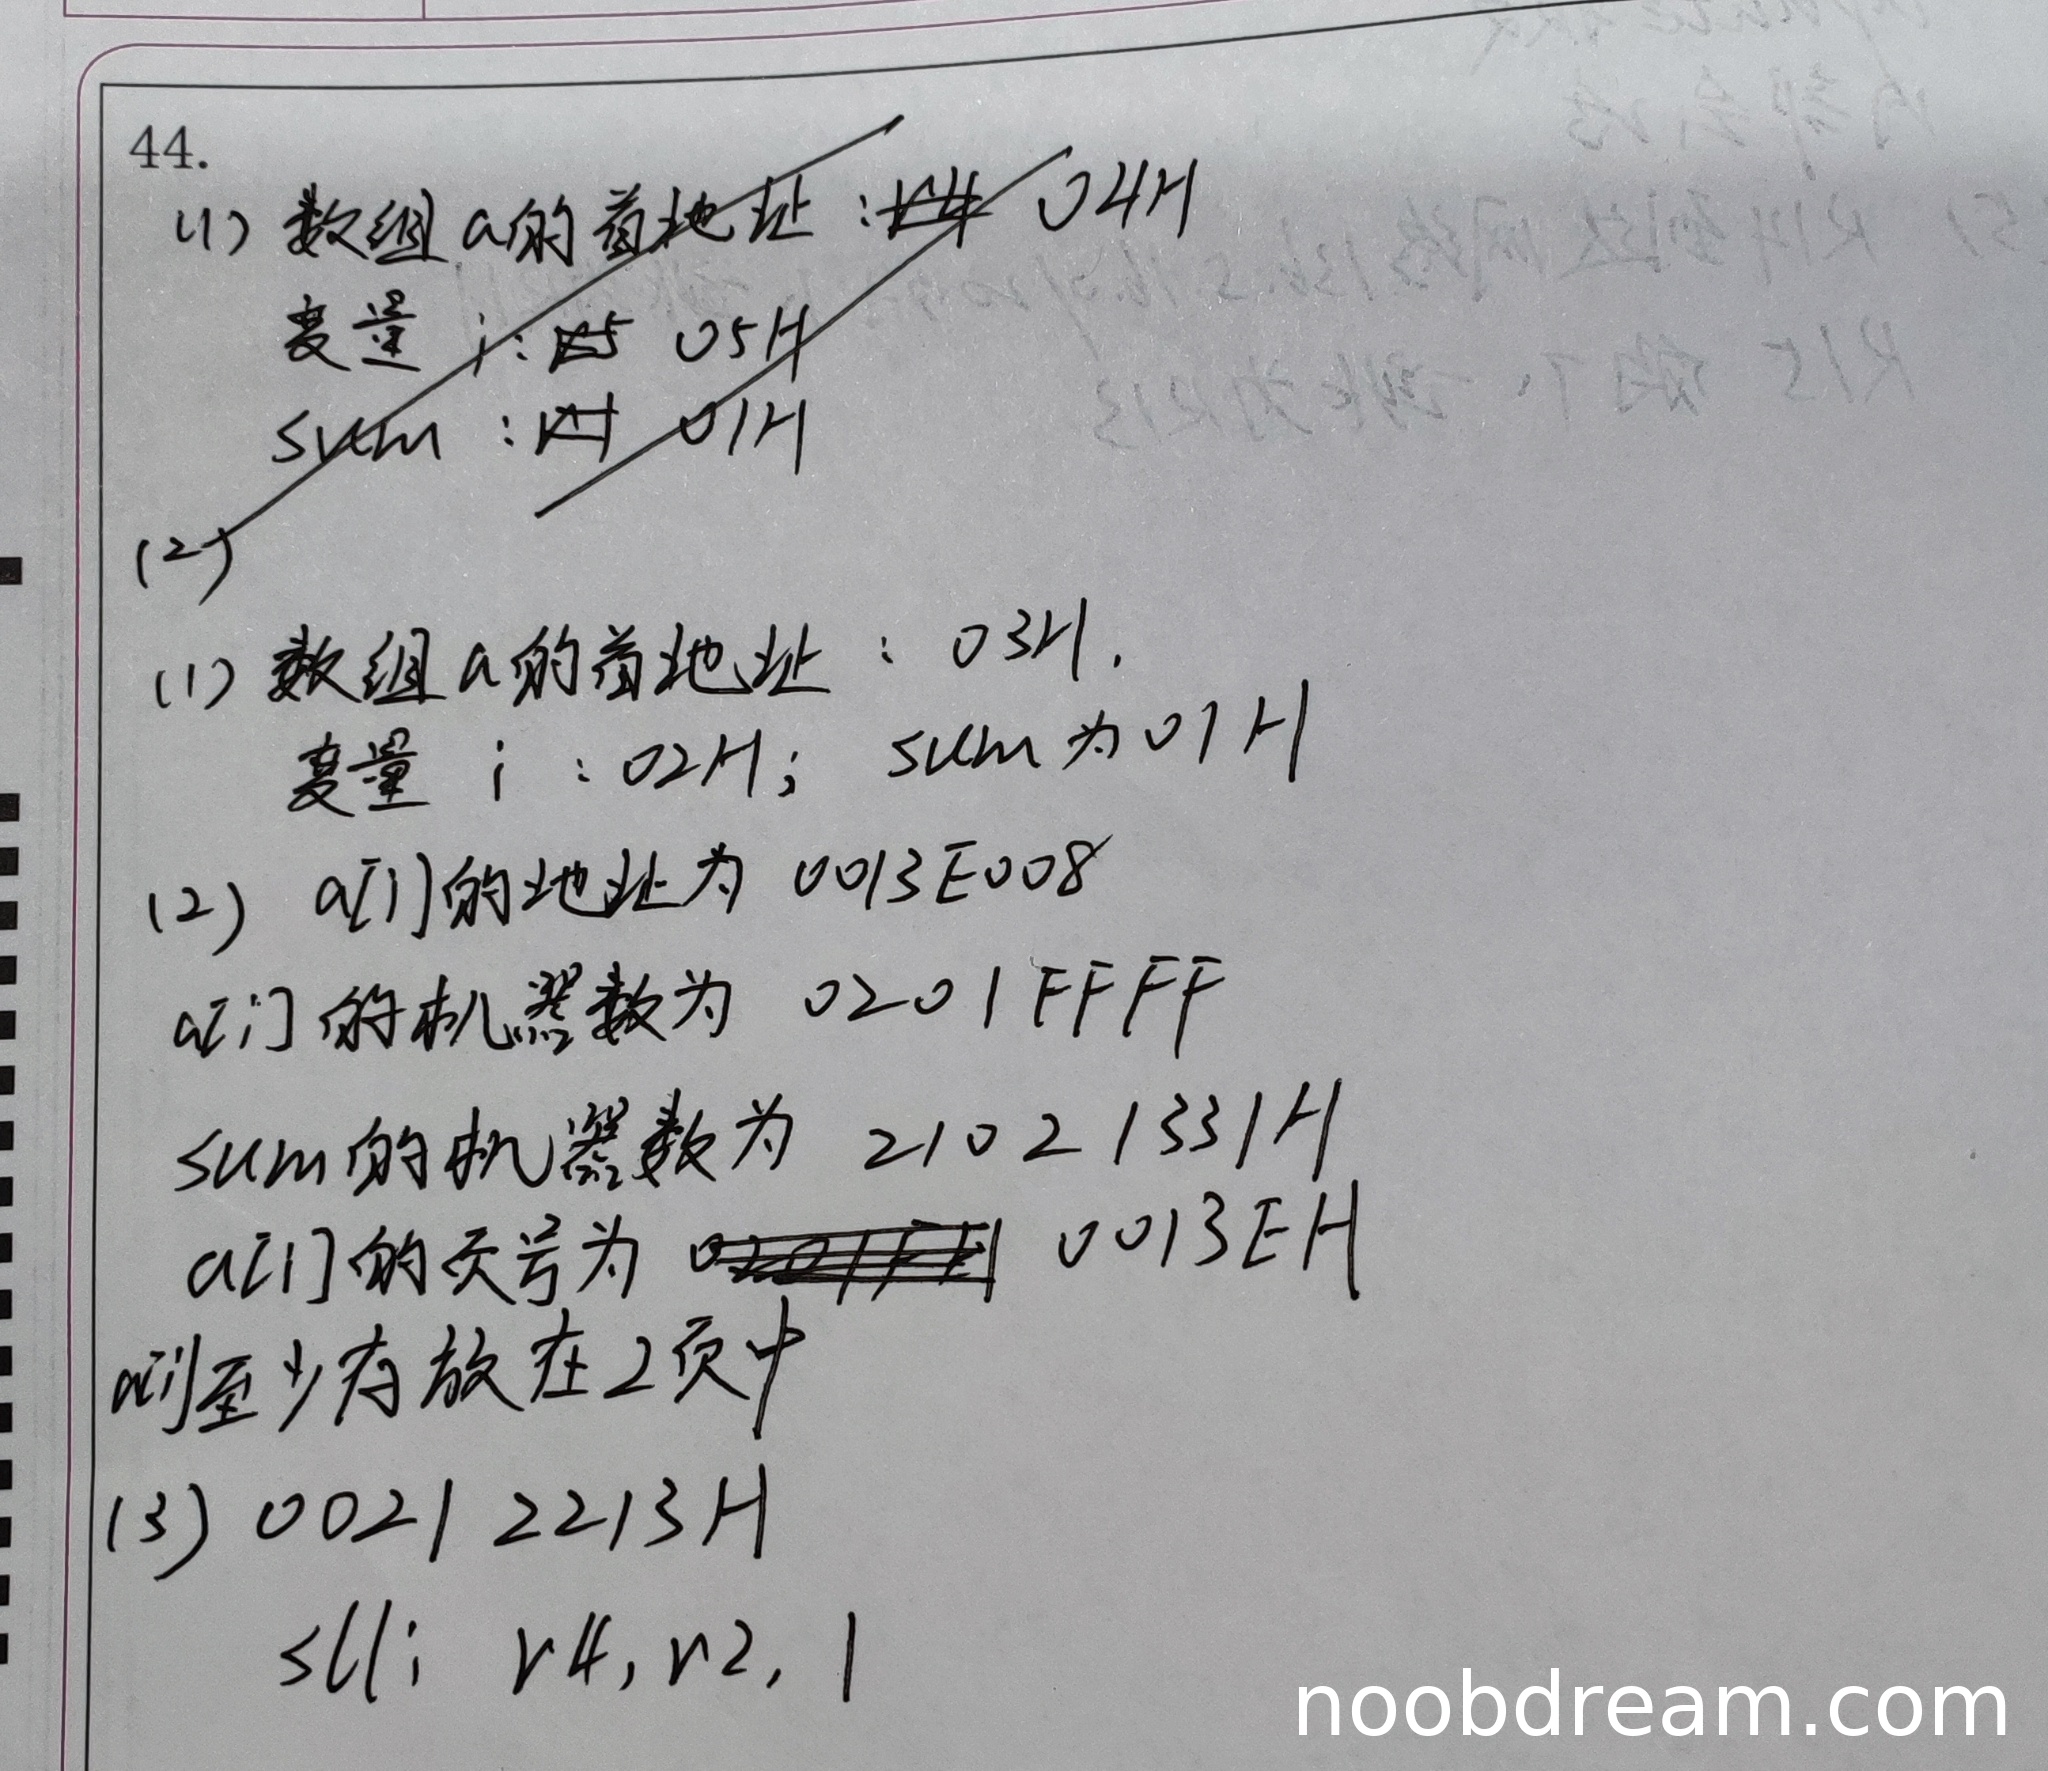 44.
(1) 数组a的首地址: 04H
变量 i: r5 05H
sum: r1 01H
(2)
(1) 数组a的首地址: 03H.
变量 i: 02H; sum为01H
(2) a[i]的地址为 0013E008
a[i]的机器数为 0201FFFF
sum的机器数为 21021331H
a[i]的页号为 0013EH
a[i]至少存放在2页中
(3) 00212213H
slli r4, r2, 1
noobdream.com